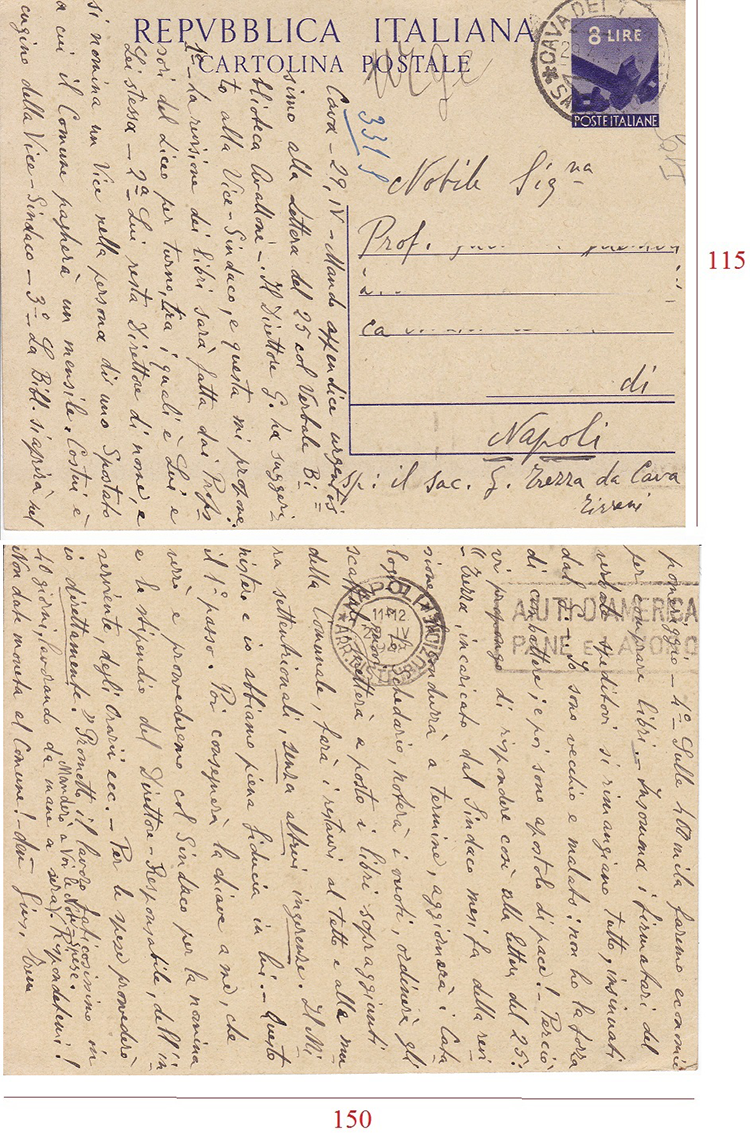 REPVBBLICA ITALIANA
CARTOLINA POSTALE
8 LIRE
POSTE ITALIANE
CAVA DEI T
Urge
3319
Nobile Sig.na
Prof.
di
Napoli
Sp: il sac. G. Trezza da Cava
Tirreni
Cava - 29, IV - Mando appendice urgentis
simo alla Lettera del 25 col Verbale Bi=
blioteca Avallone -. Il Direttore G. ha suggeri
to alla Vice-Sindaco, e questa mi propone:
1º La revisione dei libri sarà fatta dai Profes
sori del Liceo per turno, tra i quali è Lui e
Lei stessa - 2ª Lui resta Direttore di nome, e
si nomina un Vice nella persona di uno Spostato
a cui il Comune pagherà un mensile. Costui è
cugino della Vice-Sindaco - 3º La Bibl. si aprirà nel
pomeriggio - 4º Sulle 400 mila faremo economie
per comprare libri - Insomma i firmatari del
verbale speditovi si rimangiano tutto, insinuati
dal Io sono vecchio e malato: non ho la forza
di combattere; e poi sono apostolo di pace! - Perciò
vi propongo di rispondere così alla lettera del 25:
"Trezza, incaricato dal Sindaco mesi fa della revi
sione condurrà a termine, aggiornerà i Cata
schedario, noterà i vuoti, ordinerà gli
scaffali, metterà a posto i libri sopraggiunti
della Comunale, farà i restauri al tetto e alle mu
ra settentrionali, senza altrui ingerenze. Il Mi
nistero e io abbiamo piena fiducia in lui. - Questo
il 1º passo. Poi conseguirà la chiave a me, che
verrò e provvederemo col Sindaco per la nomina
e lo stipendio del Direttore-Responsabile, dell'in
serviente degli Orarii ecc. - Per le spese provvederò
io direttamente." Prometto il lavoro faticosissimo in
Manderò a Voi le Note-Spese.
40 giorni, lavorando da mane a sera. Rispondetemi!
Non date moneta al Comune! -
NAPOLI
11-12
AIUTI D'AMERICA
PANE E LAVORO
115
150